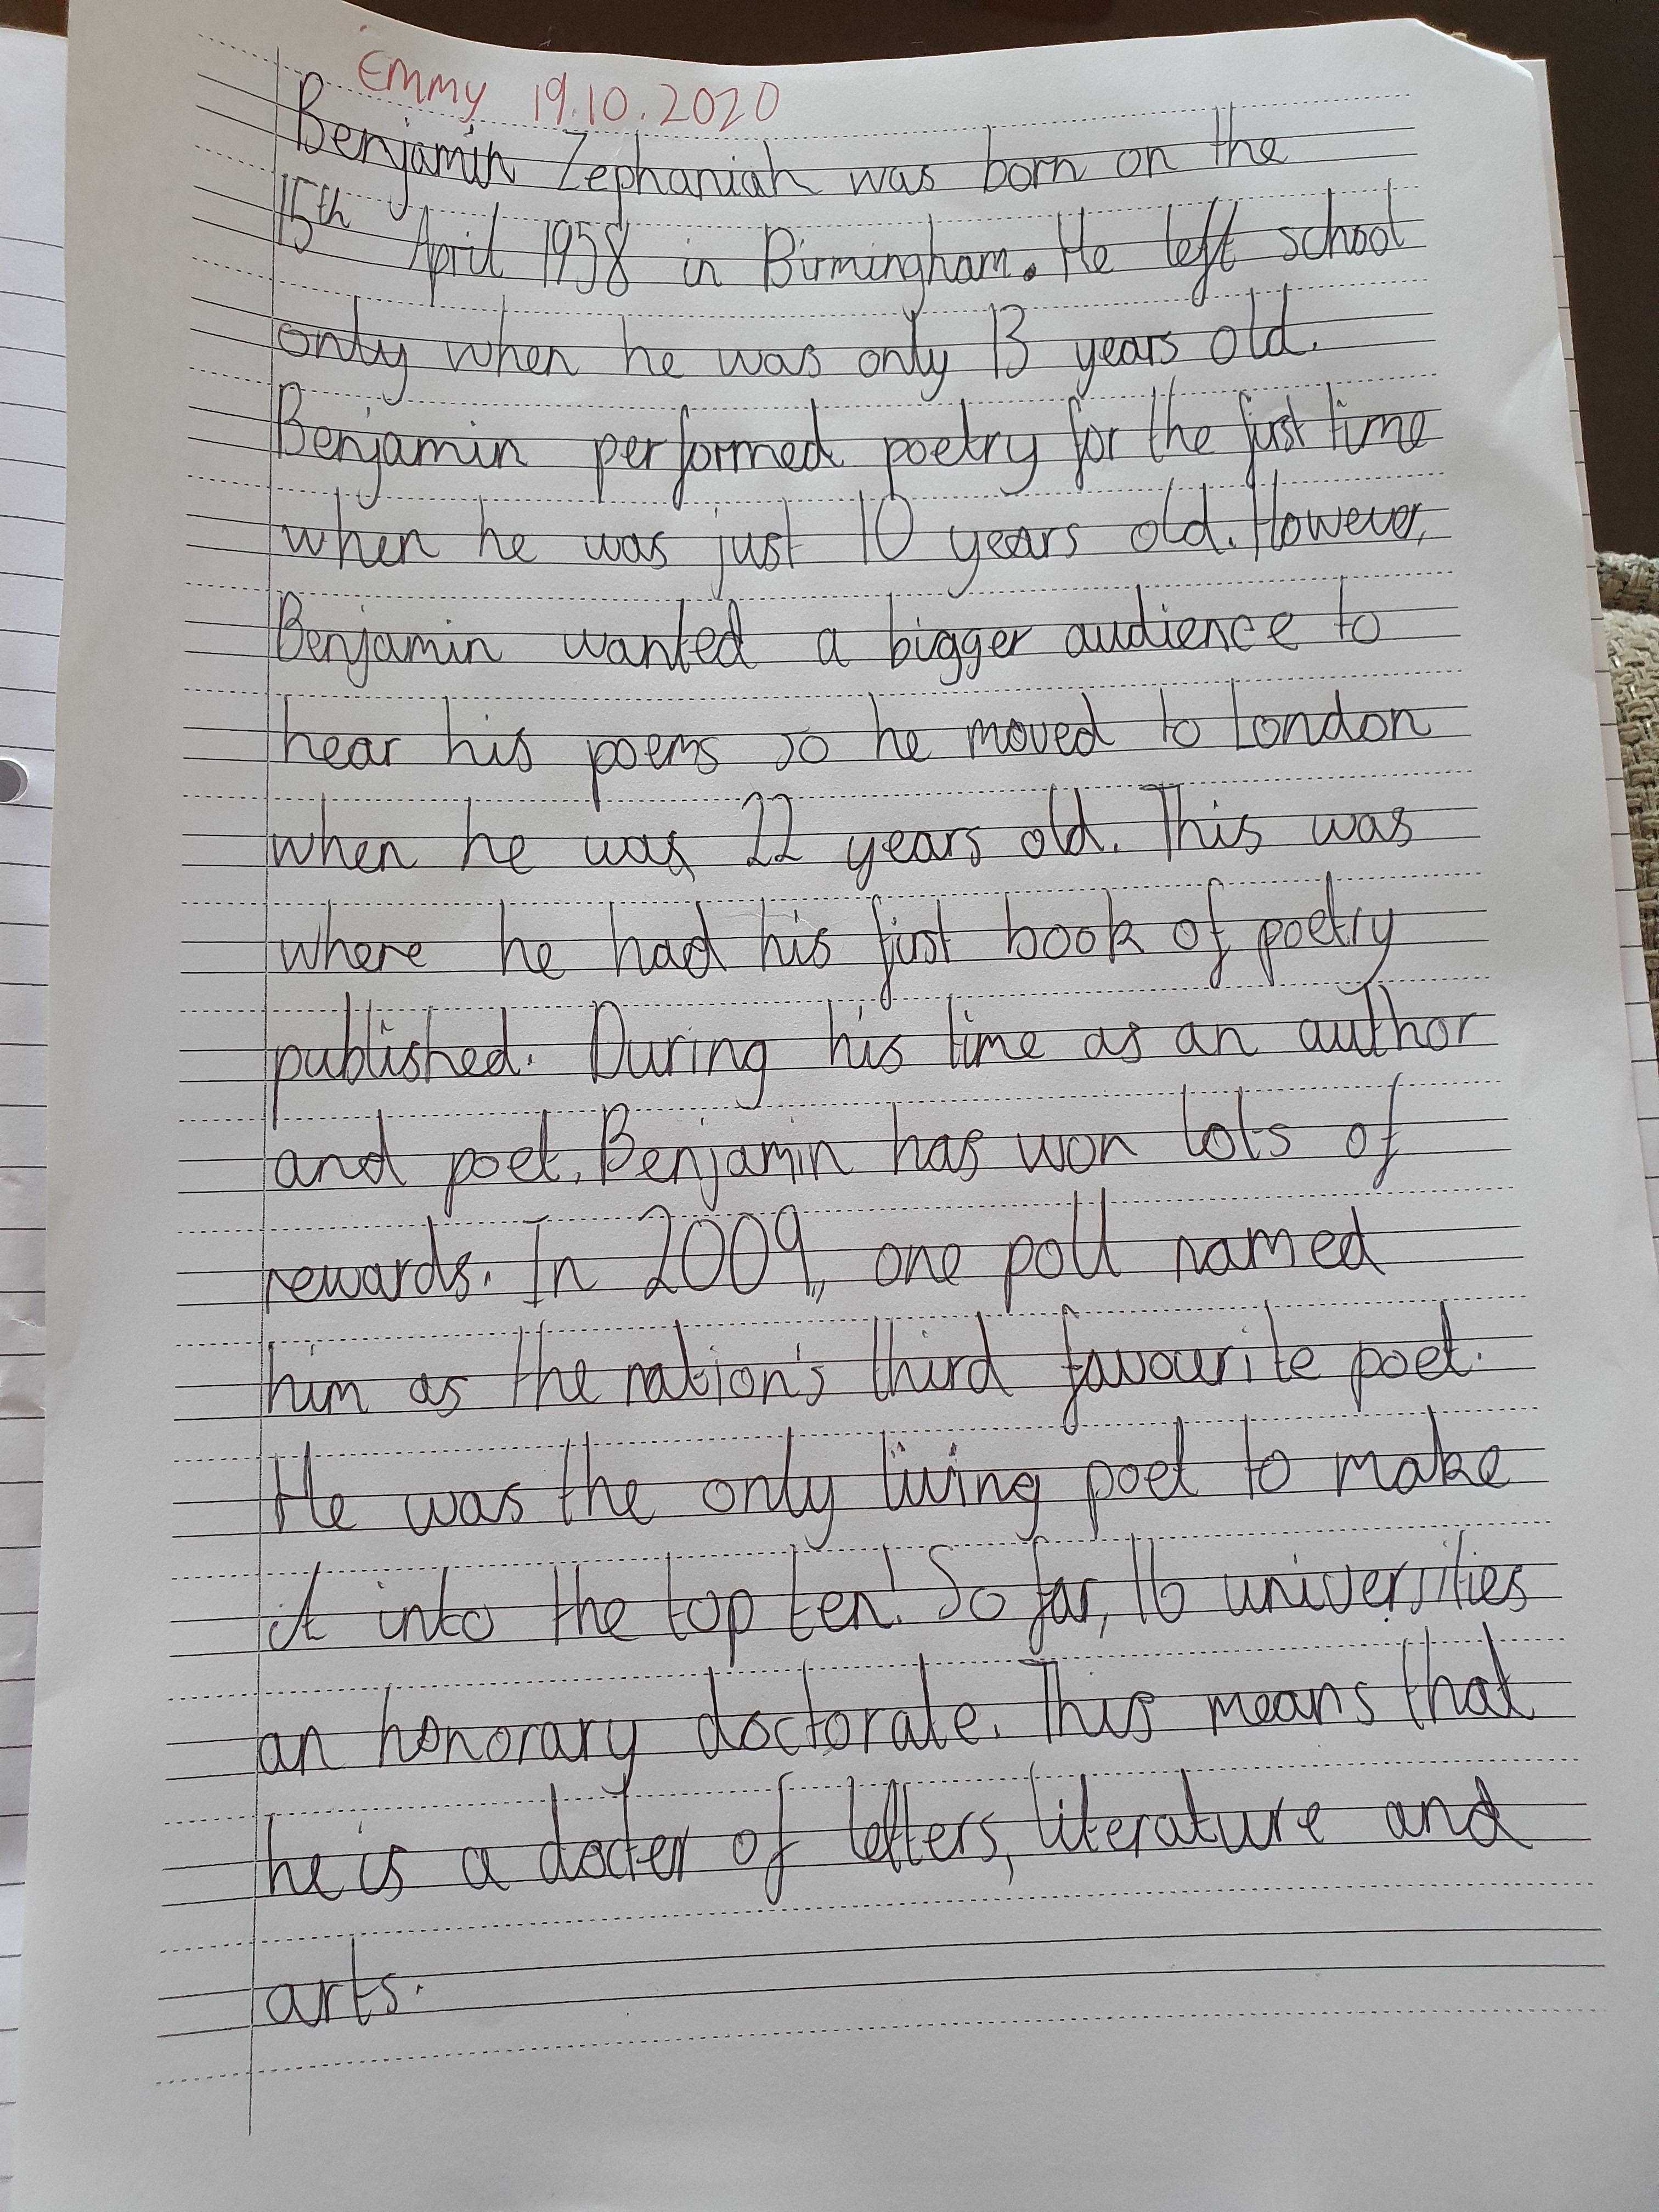 Emmy 19.10.2020
Benjamin Zephaniah was born on the
15th April 1958 in Birmingham. He left school
only when he was only 13 years old.
Benjamin performed poetry for the first time
when he was just 10 years old. However,
Benjamin wanted a bigger audience to
hear his poems so he moved to London
when he was 22 years old. This was
where he had his first book of poetry
published. During his time as an author
and poet, Benjamin has won lots of
rewards. In 2009, one poll named
him as the nation's third favourite poet.
He was the only living poet to make
it into the top ten! So far, 16 universities
an honorary doctorate. This means that
he is a docter of letters, literature and
arts.